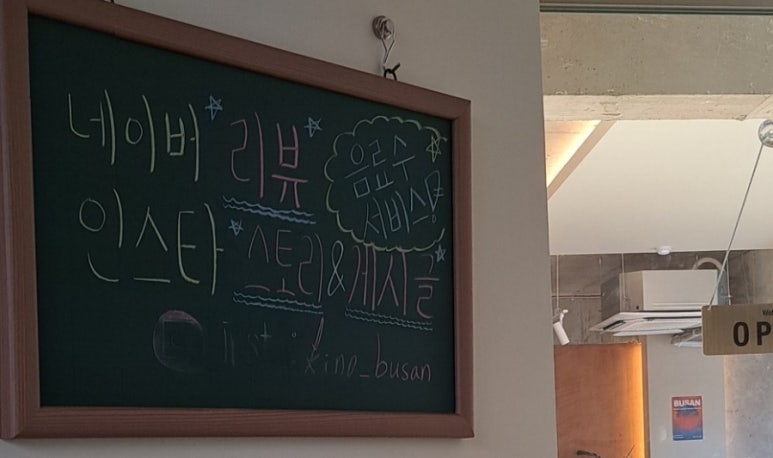 네이버 리뷰
음료수
서비스!
인스타 스토리 & 게시글
inst : kino_busan
OP
BUSAN